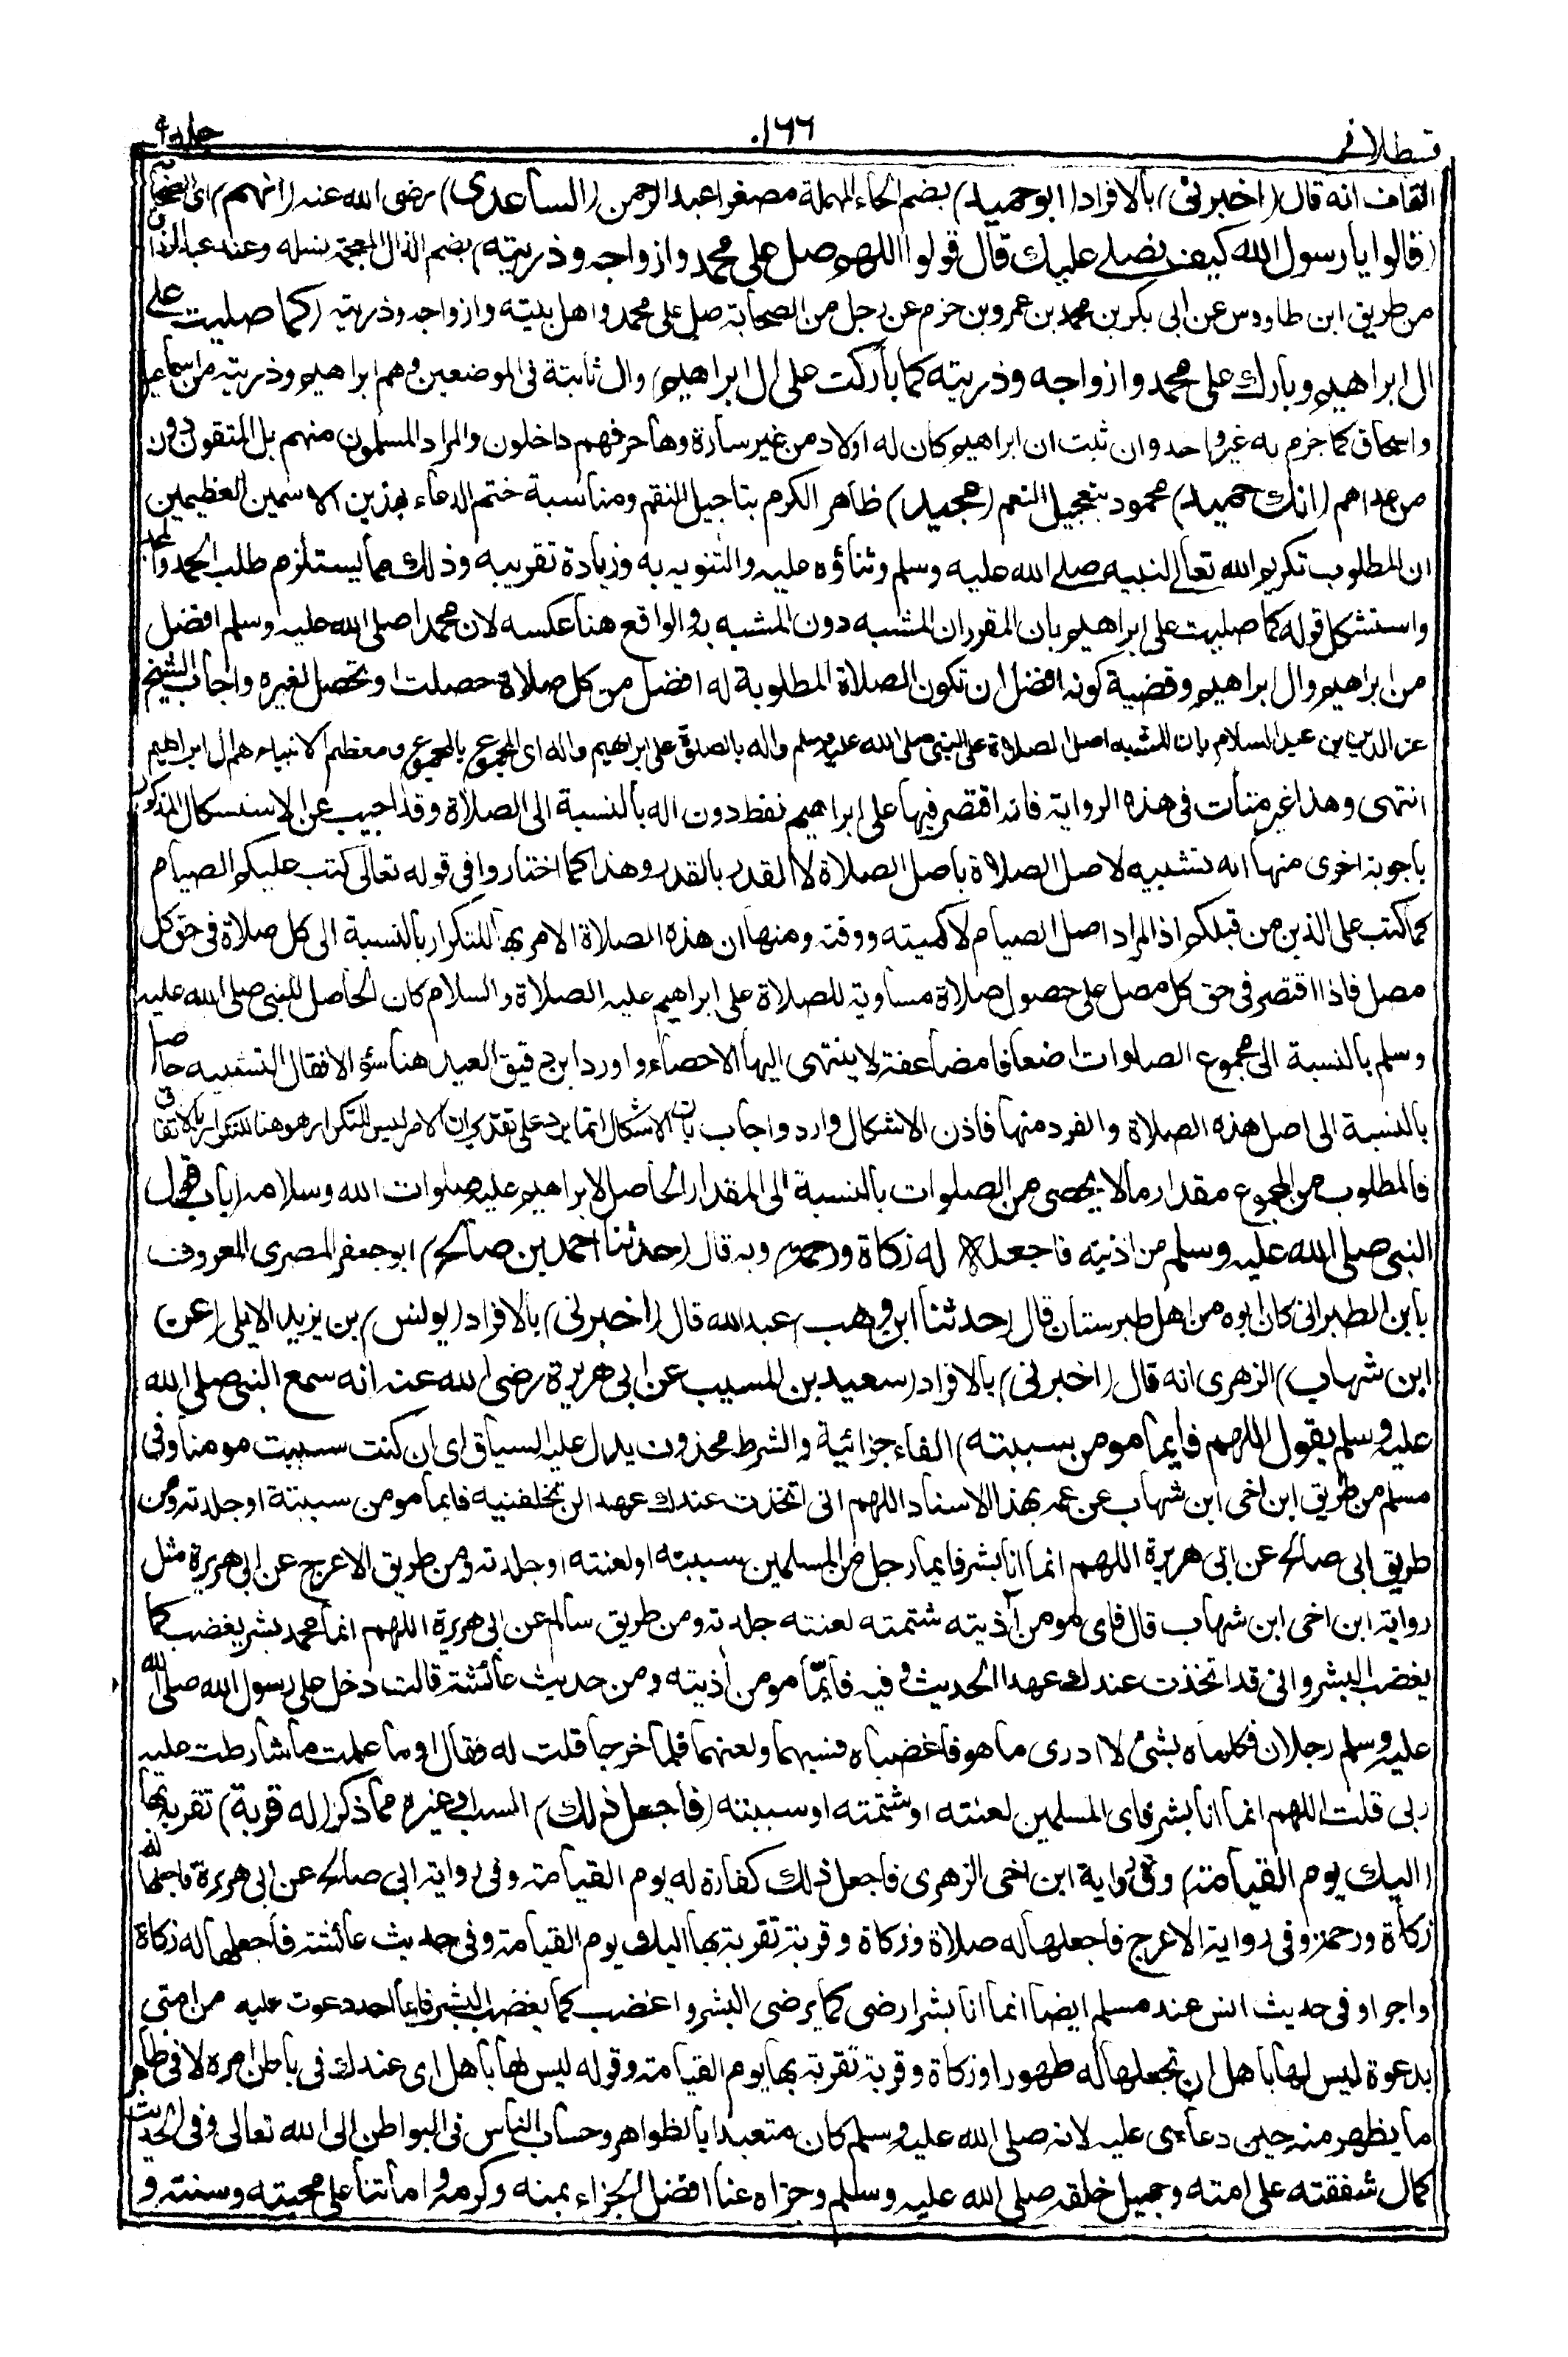 قسطلانی ١٦٦ جلد ٩
القاف انه قال (اخبرنى) بالافراد (ابو حميد) بضم الحاء المهملة مصغرا عبد الرحمن (الساعدى) رضى الله عنه (انهم) اى الصحابة
(قالوا يا رسول الله كيف نصلى عليك قال قولوا اللهم صل على محمد وازواجه وذريته) بضم الذال المعجمة نسله وعند عبد الرزاق
من طريق ابن طاووس عن ابى بكر بن محمد بن عمرو بن حزم عن رجل من الصحابة صل على محمد واهل بيته وازواجه وذريته (كما صليت على
ال ابراهيم وبارك على محمد وازواجه وذريته كما باركت على ال ابراهيم) وال ثابتة فى الموضعين وهم ابراهيم وذريته من اسماعيل
واسحاق كما جزم به غير واحد وان ثبت ان ابراهيم كان له اولاد من غير سارة وهاجر فهم داخلون والمراد المسلمون منهم بل المتقون دون
من عداهم (انك حميد) محمود بتعجيل النعم (مجيد) ظاهر الكرم بتاجيل النقم ومناسبة ختم الدعاء بهذين الاسمين العظيمين
ان المطلوب تكريم الله تعالى لنبيه صلى الله عليه وسلم وثناؤه عليه والتنويه به وزيادة تقريبه وذلك مما يستلزم طلب الحمد والمجد
واستشكل قوله كما صليت على ابراهيم بان المقرر ان المشبه دون المشبه به والواقع هنا عكسه لان محمدا صلى الله عليه وسلم افضل
من ابراهيم وال ابراهيم وقضية كونه افضل ان تكون الصلاة المطلوبة له افضل من كل صلاة حصلت او تحصل لغيره واجاب الشيخ
عز الدين بن عبد السلام بان المشبه اصل الصلاة على النبى صلى الله عليه وسلم واله بالصلوة على ابراهيم واله اى المجموع بالمجموع ومعظم الانبياء هم ال ابراهيم
انتهى وهذا غير متات فى هذه الرواية فانه اقتصر فيها على ابراهيم فقط دون اله بالنسبة الى الصلاة وقد اجيب عن الاستشكال المذكور
باجوبة اخرى منها انه تشبيه لاصل الصلاة باصل الصلاة لا القدر بالقدر وهذا كما اختاروا فى قوله تعالى كتب عليكم الصيام
كما كتب على الذين من قبلكم اذ المراد اصل الصيام لا كميته ووقته ومنها ان هذه الصلاة الامر بها للتكرار بالنسبة الى كل صلاة فى حق كل
مصل فاذا اقتضى فى حق كل مصل على حصول صلاة مساوية للصلاة على ابراهيم عليه الصلاة والسلام كان الحاصل للنبى صلى الله عليه
وسلم بالنسبة الى مجموع الصلوات اضعافا مضاعفة لا ينتهى اليها الاحصاء واورد ابن دقيق العيد هنا سؤالا فقال التشبيه حاصل
بالنسبة الى اصل هذه الصلاة والفرد منها فاذن الاشكال وارد واجاب بان الاشكال انما يرد على تقدير ان الامر ليس للتكرار وهو هنا للتكرار بالاتفاق
فالمطلوب من المجموع مقدار ما لا يحصى من الصلوات بالنسبة الى المقدار الحاصل لابراهيم عليه صلوات الله وسلامه (باب قول
النبى صلى الله عليه وسلم من اذيته فاجعله له زكاة ورحمة) وبه قال (حدثنا احمد بن صالح) ابو جعفر المصرى المعروف
بابن الطبرانى كان ابوه من اهل طبرستان قال (حدثنا ابن وهب) عبد الله قال (اخبرنى) بالافراد (يونس) بن يزيد الايلى (عن
ابن شهاب) الزهرى انه قال (اخبرنى) بالافراد (سعيد بن المسيب عن ابى هريرة رضى الله عنه انه سمع النبى صلى الله
عليه وسلم يقول اللهم فايما مومن سببته) الفاء جزائية والشرط محذوف يدل عليه السياق اى ان كنت سببت مومنا وفى
مسلم من طريق ابن اخى ابن شهاب عن عمه بهذا الاسناد اللهم انى اتخذت عندك عهدا لن تخلفنيه فايما مومن سببته او جلدته ومن
طريق ابى صالح عن ابى هريرة اللهم انما انا بشر فايما رجل من المسلمين سببته او لعنته او جلدته ومن طريق الاعرج عن ابى هريرة مثل
رواية ابن اخى ابن شهاب قال فاى مومن آذيته شتمته لعنته جلدته ومن طريق سالم عن ابى هريرة اللهم انما محمد بشر يغضب كما
يغضب البشر وانى قد اتخذت عندك عهدا الحديث وفيه فايّما مومن أذيته ومن حديث عائشة قالت دخل على رسول الله صلى الله
عليه وسلم رجلان فكلماه بشئ لا ادرى ما هو فاغضباه فسبهما ولعنهما فلما خرجا قلت له فقال او ما علمت ما شارطت عليه
ربى قلت اللهم انما انا بشر فاى المسلمين لعنته او شتمته او سببته (فاجعل ذلك) السب او غيره مما ذكر (له قربة) تقربه بها
(اليك يوم القيامة) وفى رواية ابن اخى الزهرى فاجعل ذلك كفارة له يوم القيامة وفى رواية ابى صالح عن ابى هريرة فاجعلها له
زكاة ورحمة وفى رواية الاعرج فاجعلها له صلاة وزكاة وقربة تقربه بها اليك يوم القيامة وفى حديث عائشة فاجعلها له زكاة
واجرا وفى حديث انس عند مسلم ايضا انما انا بشر ارضى كما يرضى البشر واغضب كما يغضب البشر فايما احد دعوت عليه من امتى
بدعوة ليس لها باهل ان تجعلها له طهورا وزكاة وقربة تقربه بها يوم القيامة وقوله ليس لها باهل اى عندك فى باطن امره لا فى ظاهر
ما يظهر منه حين دعاءى عليه لانه صلى الله عليه وسلم كان متعبدا بالظواهر وحساب الناس فى البواطن الى الله تعالى وفى الحديث
كمال شفقته على امته وجميل خلقه صلى الله عليه وسلم وجزاه عنا افضل الجزاء بمنه وكرمه واماتنا على محبته وسنته و